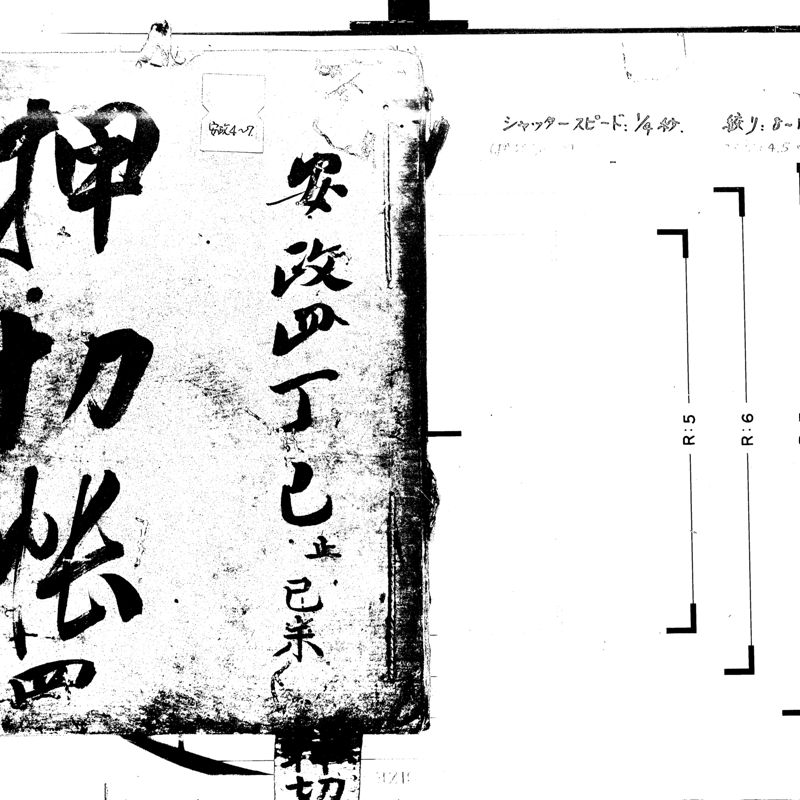 シャッタースピード: 1/4 秒. 絞り: 8~
安政4~7
安政四丁巳
止 己未
押切帳四
R:5
R:6
押切